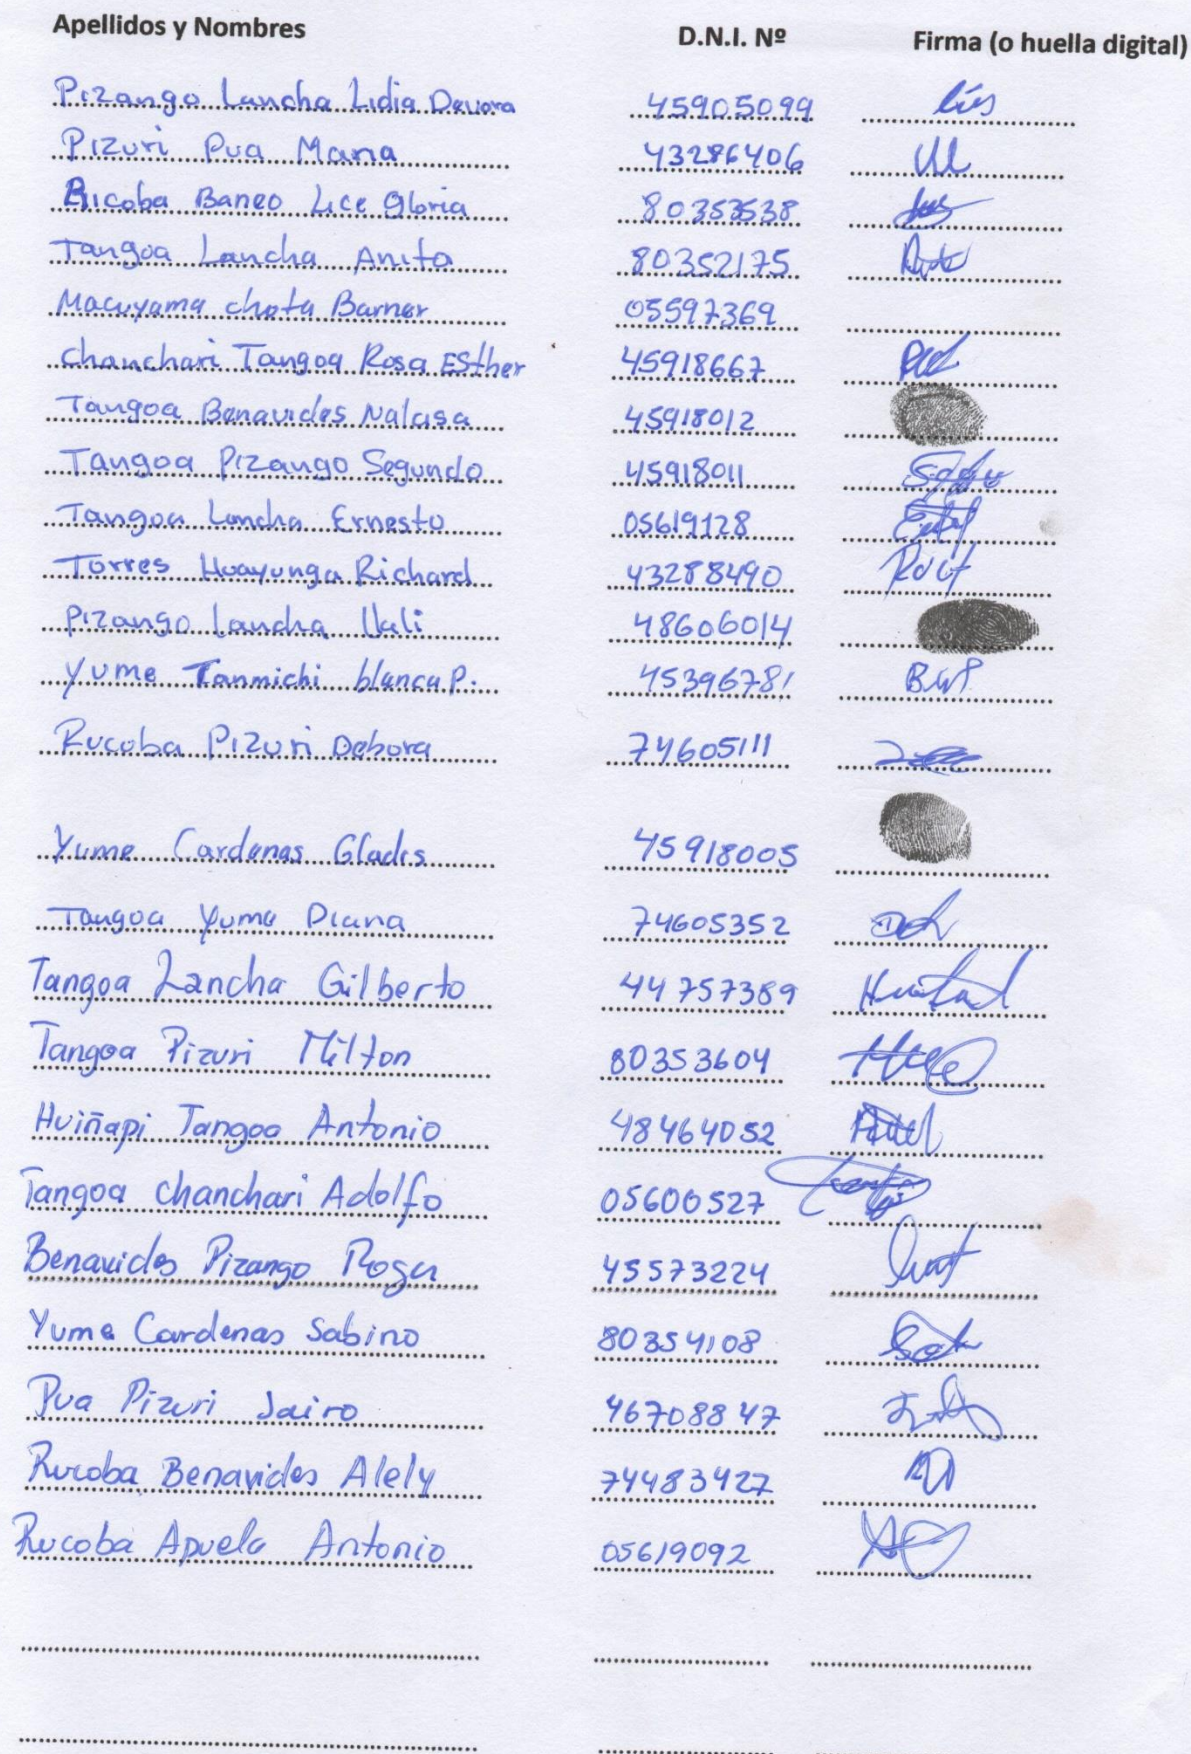 Apellidos y Nombres D.N.I. Nº Firma (o huella digital)
Pizango Lancha Lidia Devora 45905099
Pizuri Pua Maria 43286406
Ricoba Baneo Lice Gloria 80353538
Tangoa Lancha Anita 80352175
Macuyama chota Barner 05597369
Chanchari Tangoa Rosa ESther 45918667
Tangoa Benavides Nalasa 45918012
Tangoa Pizango Segundo 45918011
Tangoa Lancha Ernesto 05619128
Torres Huayunga Richard 43288490
Pizango Lancha Llali 48606014
Yume Tanmichi blanca P. 45396781
Rucoba Pizuri Debora 74605111
Yume Cardenas Gladis 45918005
Tangoa Yume Diana 74605352
Tangoa Lancha Gilberto 44757389
Tangoa Pizuri Milton 80353604
Huiñapi Tangoa Antonio 48464052
Tangoa chanchari Adolfo 05600527
Benavides Pizango Roger 45573224
Yume Cardenas Sabino 80354108
Pua Pizuri Jairo 46708847
Rucoba Benavides Alely 74483427
Rucoba Apuela Antonio 05619092